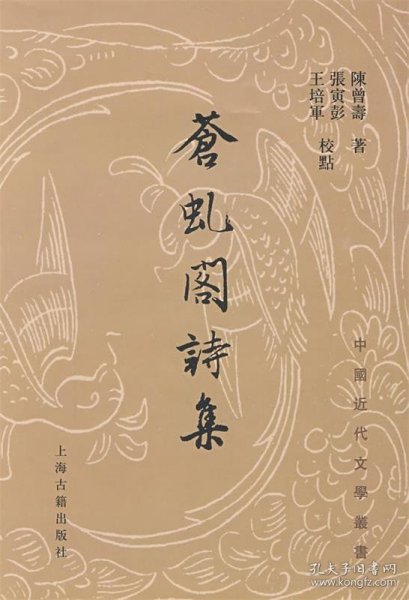 陳曾壽 著
張寅彭
王培軍 校點
蒼虬閣詩集
中國近代文學叢書
上海古籍出版社
孔夫子旧书网
www.kongfz.com